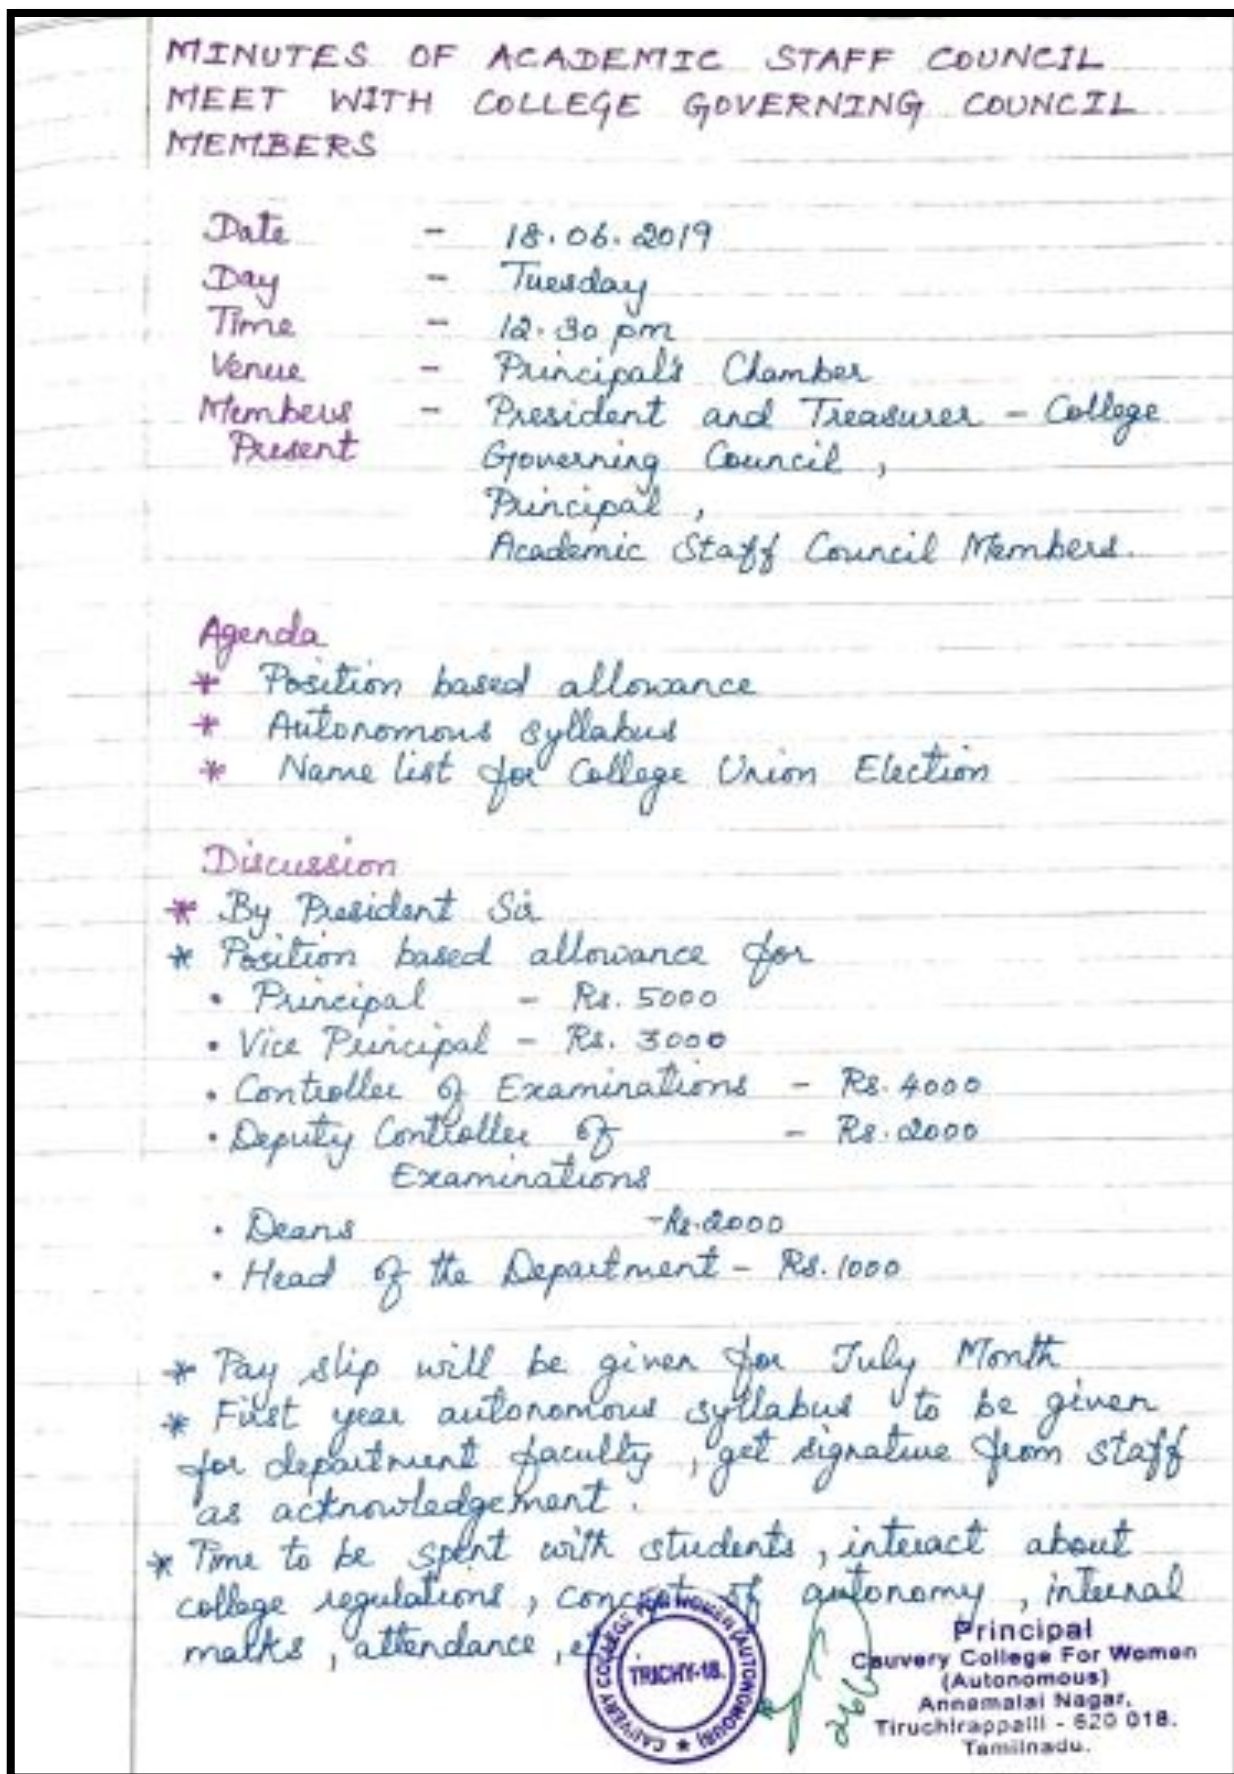 MINUTES OF ACADEMIC STAFF COUNCIL
MEET WITH COLLEGE GOVERNING COUNCIL
MEMBERS
Date - 18.06.2019
Day - Tuesday
Time - 12.30 pm
Venue - Principal's Chamber
Members - President and Treasurer - College
Present Governing Council,
Principal,
Academic Staff Council Members.
Agenda
* Position based allowance
* Autonomous syllabus
* Name list for College Union Election
Discussion
* By President Sir
* Position based allowance for
• Principal - Rs. 5000
• Vice Principal - Rs. 3000
• Controller of Examinations - Rs. 4000
• Deputy Controller of - Rs. 2000
Examinations
• Deans - Rs. 2000
• Head of the Department - Rs. 1000
* Pay slip will be given for July Month
* First year autonomous syllabus to be given
for department faculty, get signature from staff
as acknowledgement.
* Time to be spent with students, interact about
college regulations, concept of autonomy, internal
marks, attendance,
CAUVERY COLLEGE FOR WOMEN (AUTONOMOUS)
TRICHY-18.
Principal
Cauvery College For Women
(Autonomous)
Annamalai Nagar,
Tiruchirappalli - 620 018.
Tamilnadu.